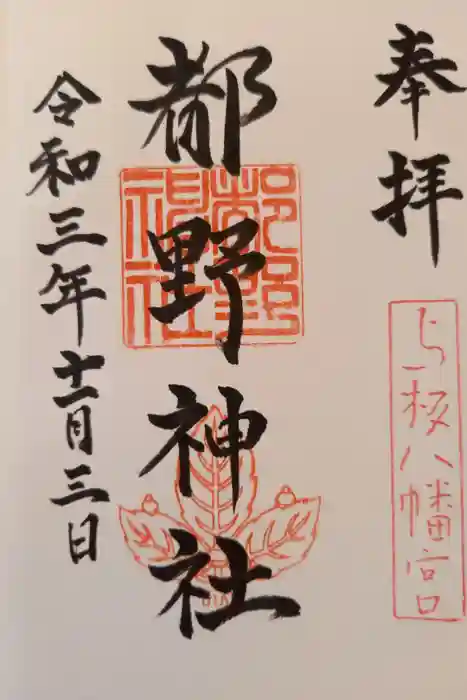 奉拝
与板八幡宮
都野神社
都野神社
令和三年十一月三日